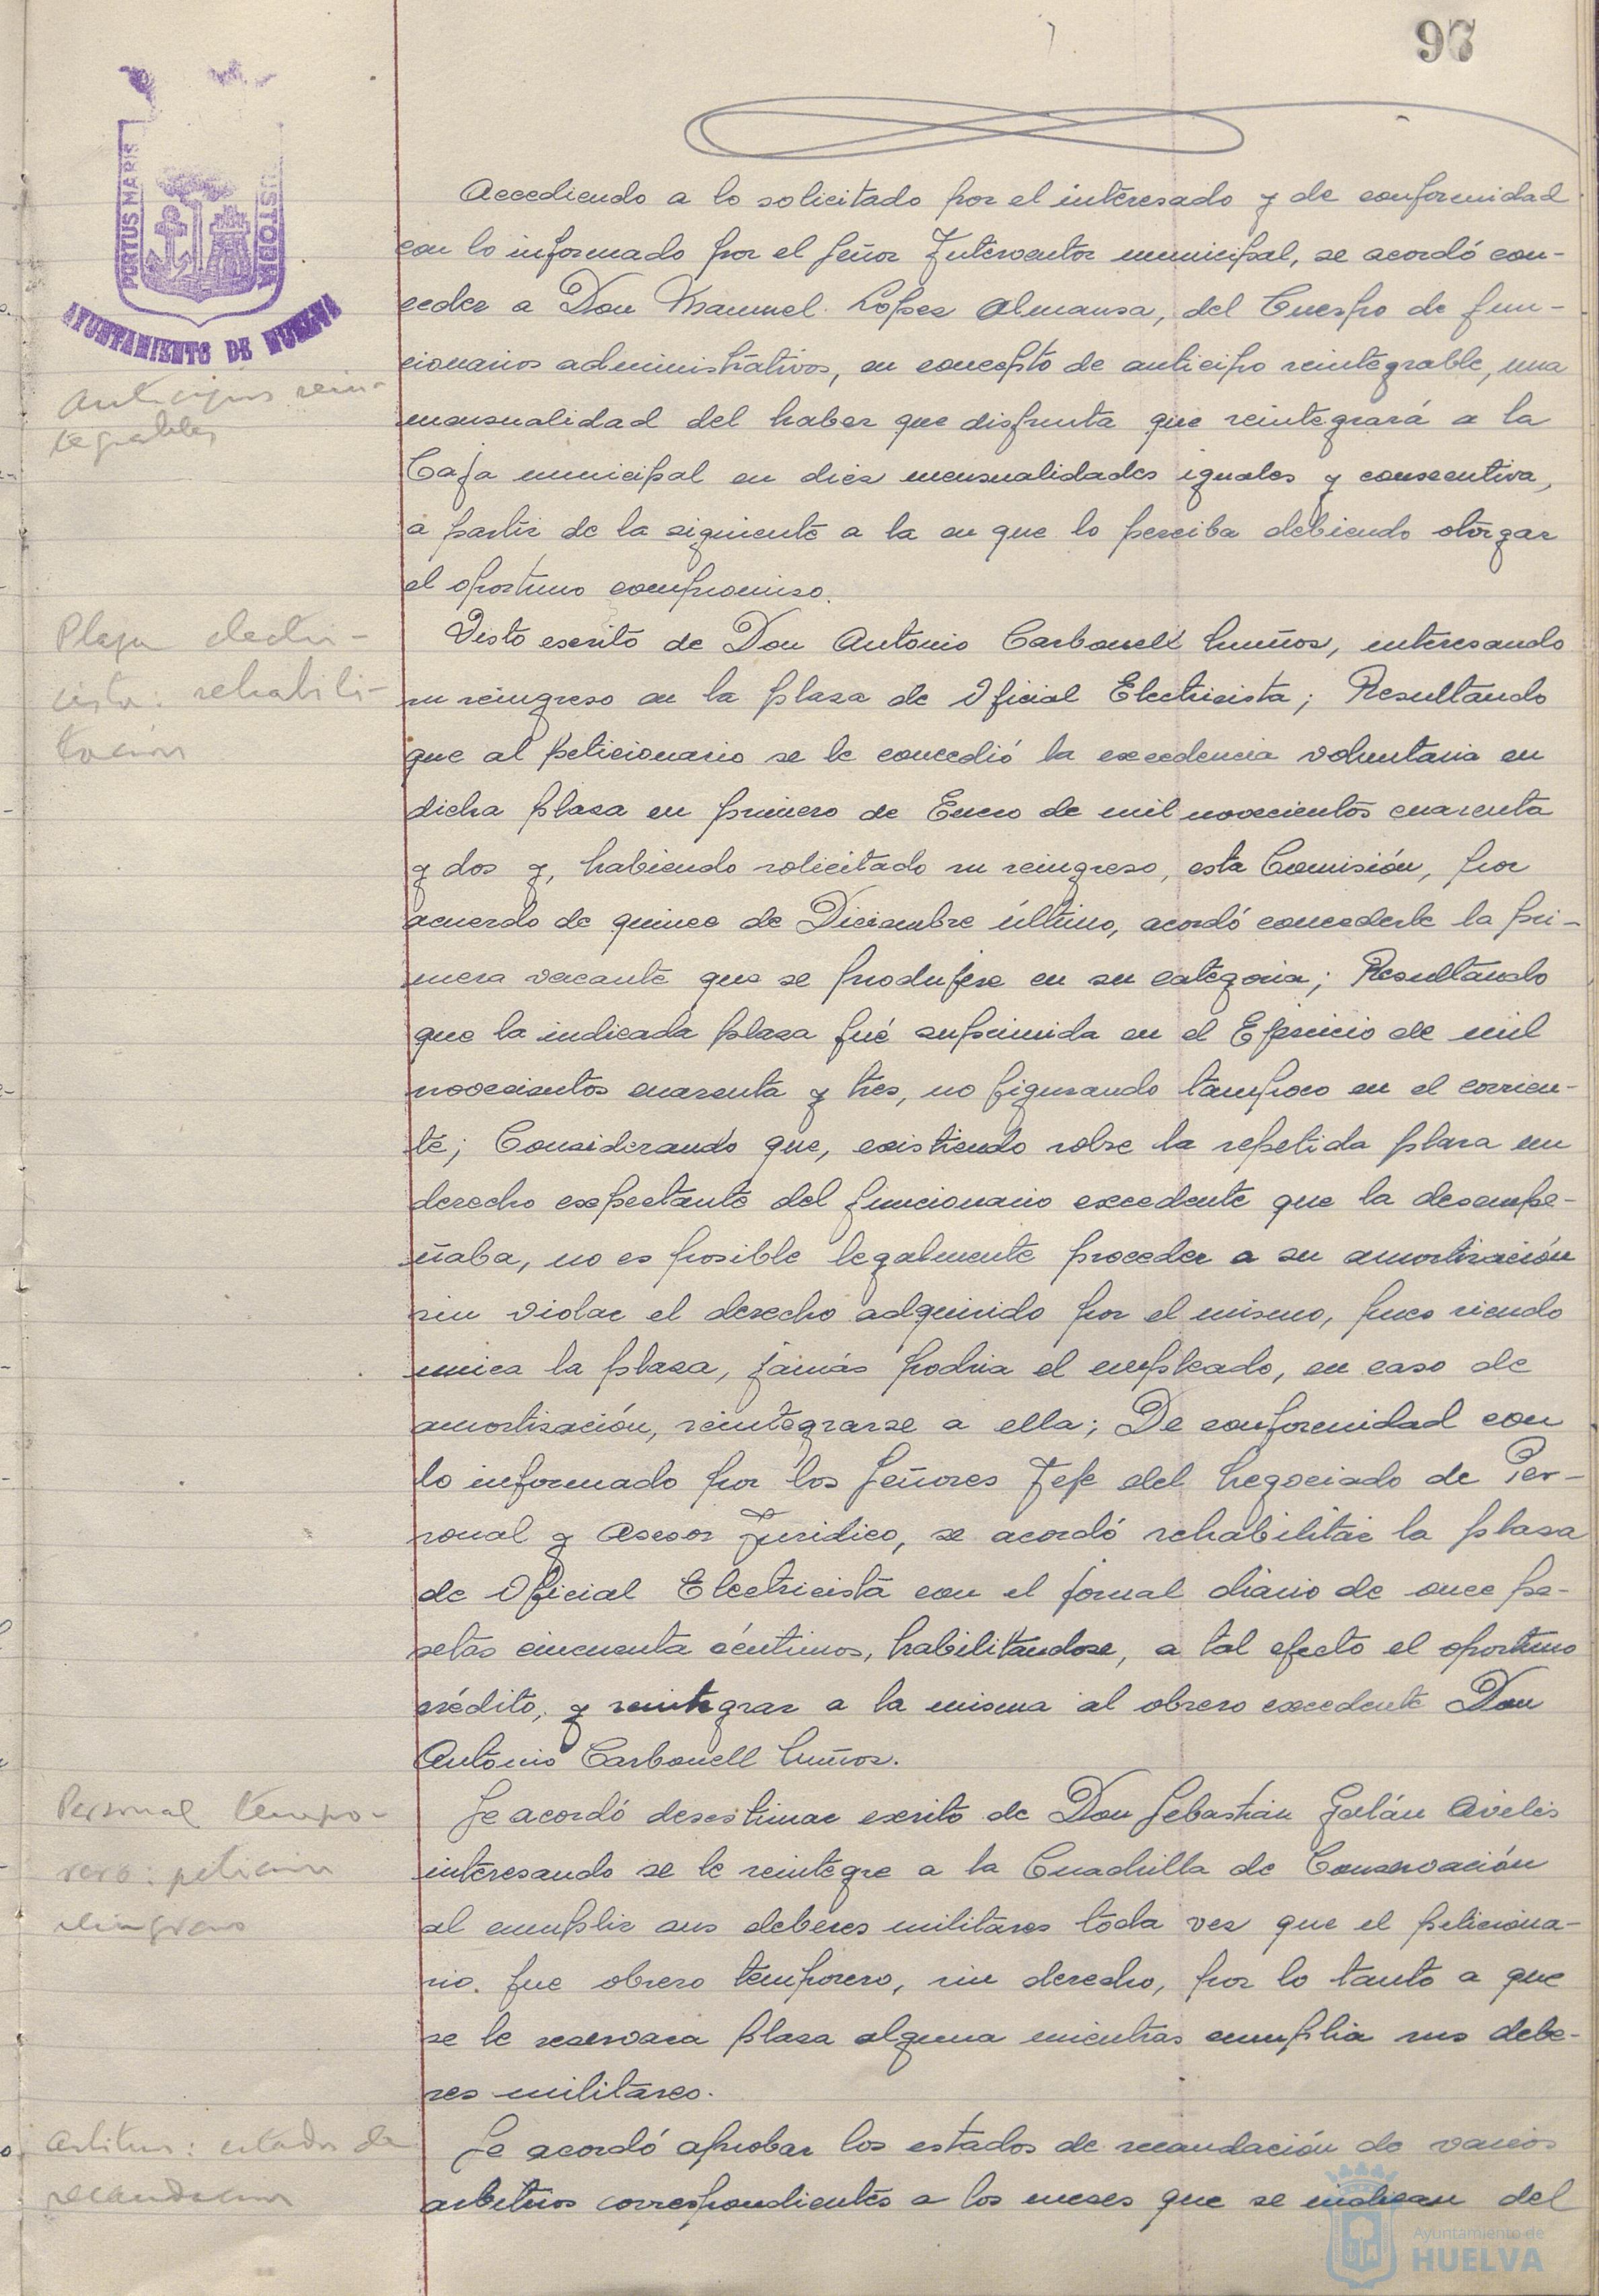 97
PORTUS MARIS
CUSTODIA
AYUNTAMIENTO DE HUELVA
Accediendo a lo solicitado por el interesado y de conformidad
con lo informado por el Señor Interventor municipal, se acordó con-
ceder a Don Manuel Lopez Almansa, del Cuerpo de fun-
cionarios administrativos, en concepto de anticipo reintegrable, una
mensualidad del haber que disfruta que reintegrará a la
Caja municipal en diez mensualidades iguales y consecutiva,
a partir de la siguiente a la en que lo perciba debiendo otorgar
el oportuno compromiso.
Anticipos rein-
tegrables
Visto escrito de Don Antonio Carbonell Muñoz, interesando
su reingreso en la plaza de Oficial Electricista; Resultando
que al peticionario se le concedió la excedencia voluntaria en
dicha plaza en primero de Enero de mil novecientos cuarenta
y dos y, habiendo solicitado su reingreso, esta Comisión, por
acuerdo de quince de Diciembre último, acordó concederle la pri-
mera vacante que se produjese en su categoria; Resultando
que la indicada plaza fué suprimida en el Ejercicio de mil
novecientos cuarenta y tres, no figurando tampoco en el corrien-
te; Considerando que, existiendo sobre la repetida plaza un
derecho expectante del funcionario excedente que la desempe-
ñaba, no es posible legalmente proceder a su amortización
sin violar el derecho adquirido por el mismo, pues siendo
unica la plaza, jamás podria el empleado, en caso de
amortización, reintegrarse a ella; De conformidad con
lo informado por los Señores Jefe del Negociado de Per-
sonal y Asesor Juridico, se acordó rehabilitar la plaza
de Oficial Electricista con el jornal diario de once pe-
setas cincuenta céntimos, habilitandose, a tal efecto el oportuno
crédito, y reintegrar a la misma al obrero excedente Don
Antonio Carbonell Muñoz.
Plaza electri-
cista: rehabili-
tación
Se acordó desestimar escrito de Don Sebastián Galán Avilés
interesando se le reintegre a la Cuadrilla de Conservación
al cumplir sus deberes militares toda vez que el peticiona-
rio. fue obrero temporero, sin derecho, por lo tanto a que
se le reservara plaza alguna mientras cumplia sus debe-
res militares.
Personal tempo-
rero: petición
reingreso
Se acordó aprobar los estados de recaudación de varios
arbitrios correspondientes a los meses que se indican del
Arbitrios: estados de
recaudacion
Ayuntamiento de
HUELVA